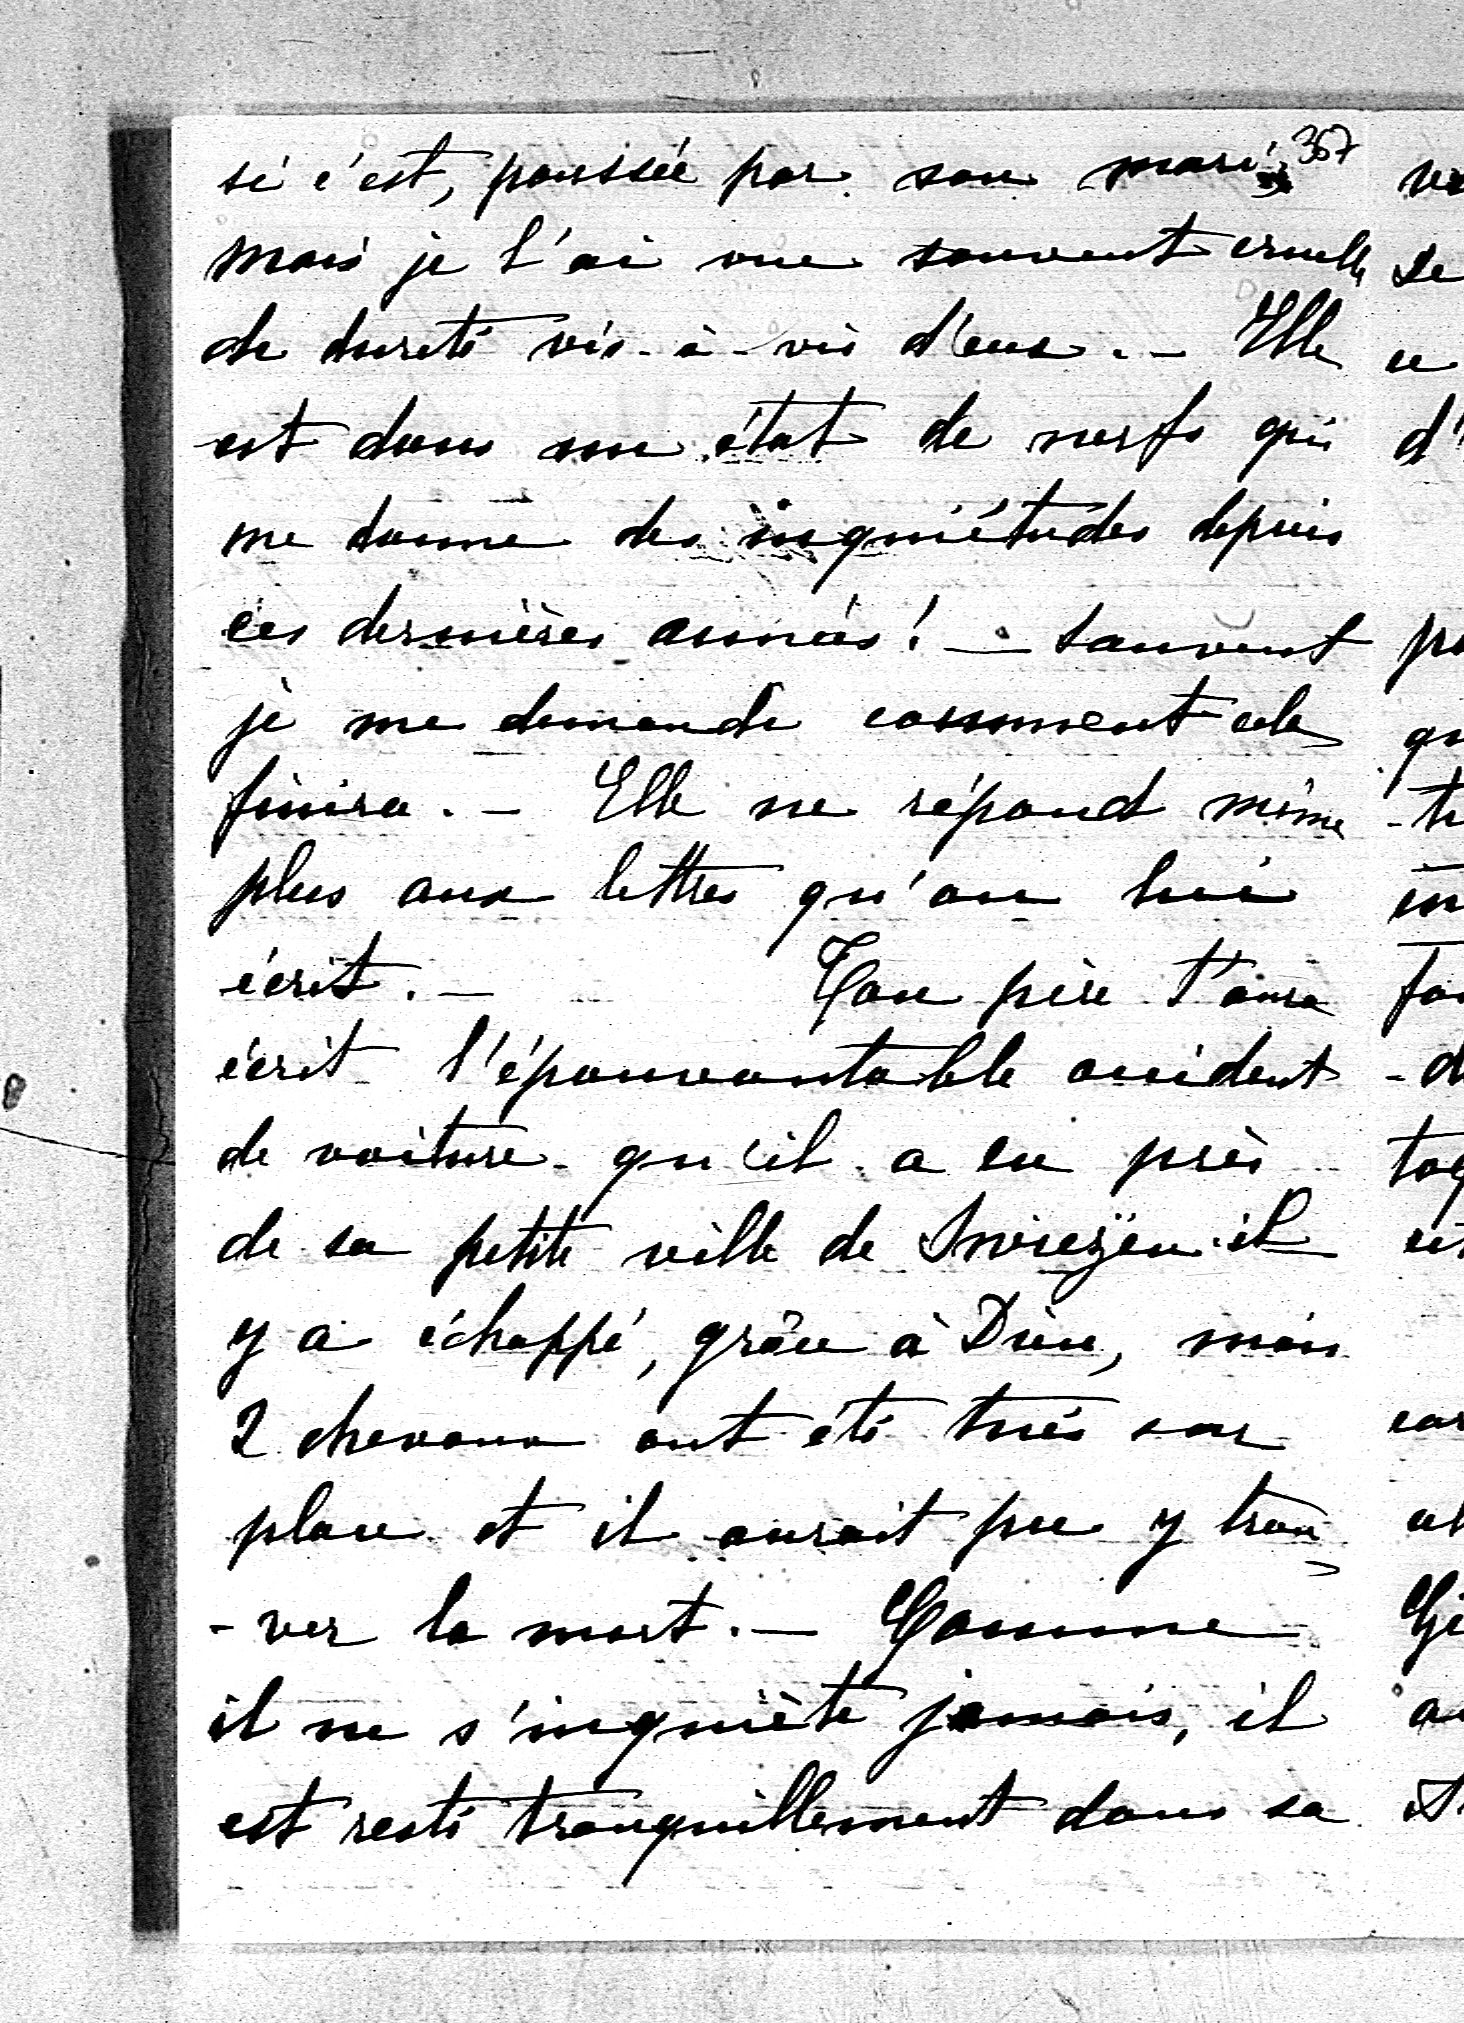 357
si c'est, poussée par son mari,
mais je l'ai vue souvent cruelle
de dureté vis-à-vis d'eux. - Elle
est dans un état de nerfs qui
me donne des inquiétudes depuis
ces dernières années! - souvent
je me demande comment cela
finira. - Elle ne répond même
plus aux lettres qu'on lui
écrit. - Ton père t'aura
écrit l'épouvantable accident
de voiture qu'il a eu près
de sa petite ville de il
y a échappé, grâce à Dieu, mais
2 chevaux ont été tués sur
place et il aurait pu y trou
-ver la mort. - Comme
il ne s'inquiète jamais, il
est resté tranquillement dans sa